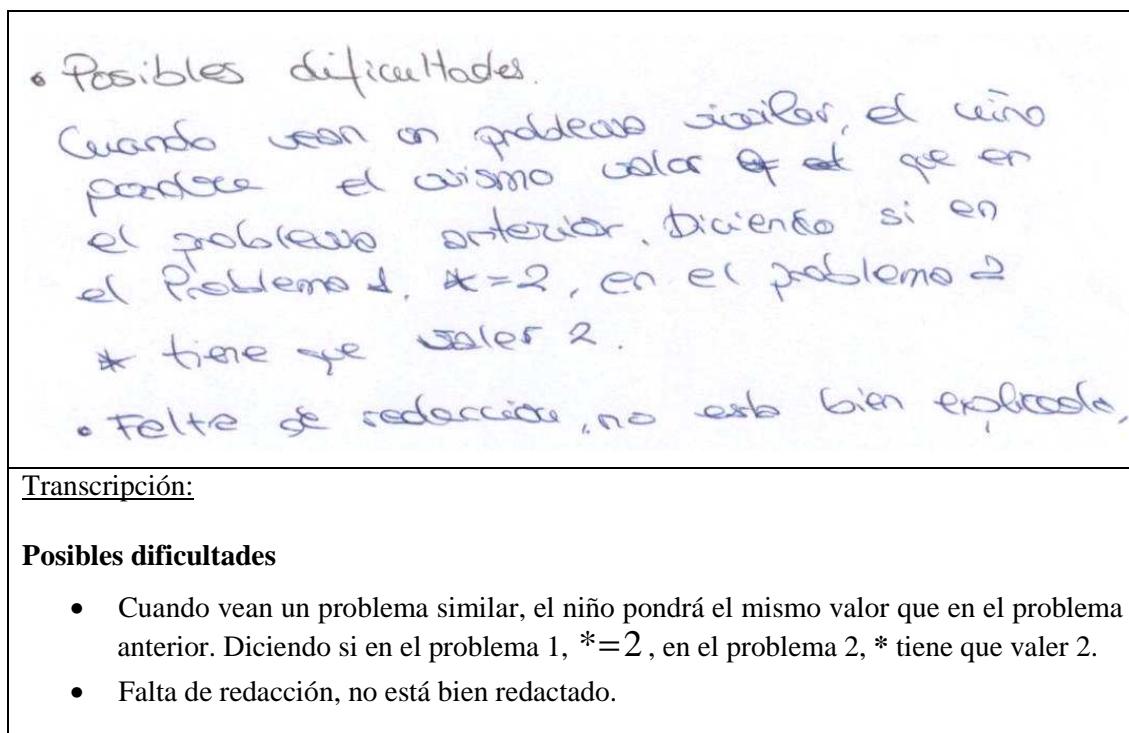 • Posibles dificultades.
Cuando vean un problema similar, el niño
el mismo valor que en
el problema anterior. Diciendo si en
el Problema 1, *=2, en el problema 2
* tiene que valer 2.
• Falta de redacción, no esta bien explicado,
Transcripción:
Posibles dificultades
• Cuando vean un problema similar, el niño pondrá el mismo valor que en el problema
anterior. Diciendo si en el problema 1, *=2, en el problema 2, * tiene que valer 2.
• Falta de redacción, no está bien redactado.